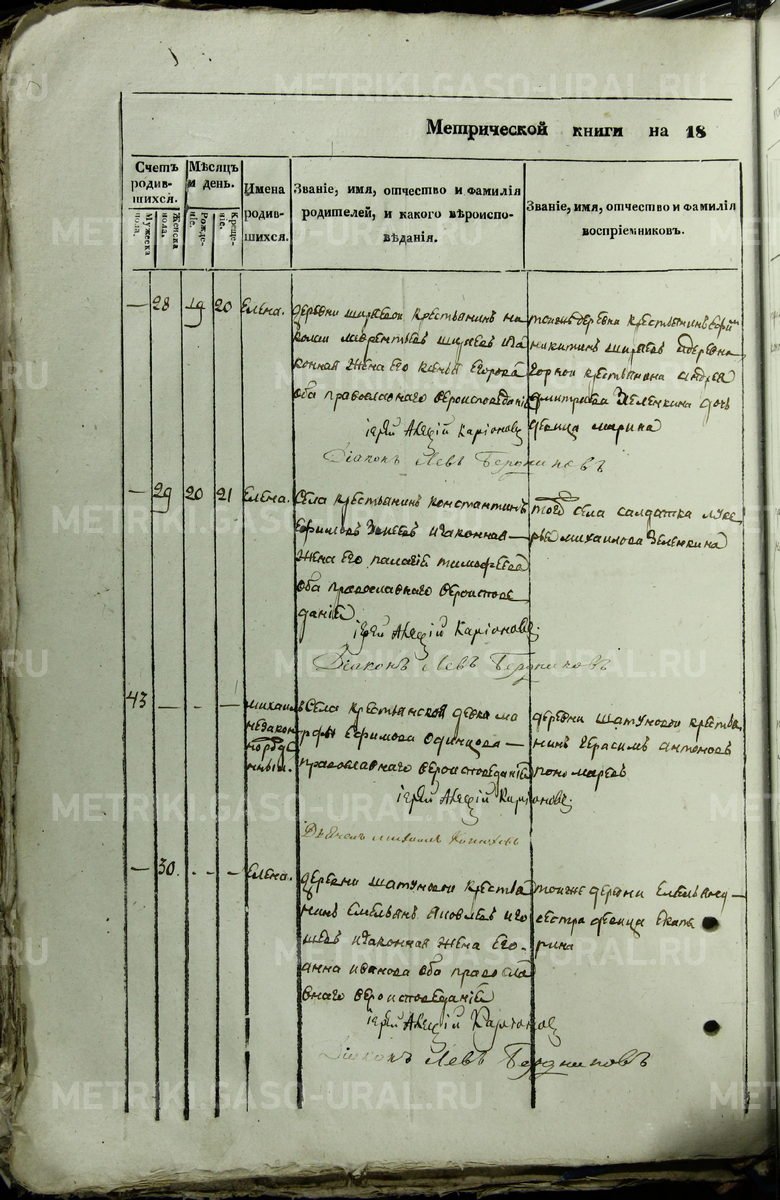 METRIKI.GASO-URAL.RU
Метрической книги на 18
Счетъ родив-шихся.
Мужеска пола.
Женска пола.
Мѣсяцъ и день.
Рожде-ніе.
Креще-ніе.
Имена родив-шихся.
Званіе, имя, отчество и фамилія
родителей, и какого вѣроиспо-
вѣданія.
Званіе, имя, отчество и фамилія
воспріемниковъ.
— 28 19 20 Елена.
деревни крестьянинъ ни
колаи лаврентьевъ зако
нная жена его Егорова
оба православнаго вероисповеданія
іерей Алексій Каріоновъ
Діаконъ Левъ Бердниковъ
тоиже деревни крестьянинъ
никитинъ деревни
крестьянина андрея
дмитрива Зеленкина дочь
девица марина
— 29 20 21 Елена.
Села крестьянинъ константинъ
Ефимовъ законная
жена его тимофеева
оба православнаго вероиспове
даній
іерей Алексій Каріоновъ
Діаконъ Левъ Бердниковъ
того села салдатка луке
рья михаилова Зеленкина
43 — - — михаилъ
незакон
норож
Села крестьянская девка ма
рфа Ефимова Одинцова
православнаго вероисповеданія
іерей Алексій Каріоновъ
михаилъ
деревни шатуновои крестья
нинъ Герасимъ антоновъ
пономаревъ
— 30. - — Елена.
деревни шатуновои крестья
нинъ Емельянъ яковлевъ
законная жена его
анна иванова оба правосла
внаго вероисповеданій
іерей Алексій Каріоновъ
Діаконъ Левъ Бердниковъ
тоиже деревни
сестра девица екате
рина